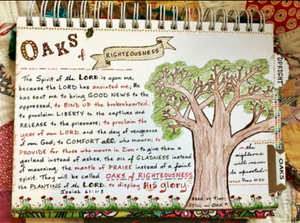 OAKS of
RIGHTEOUSNESS
The Spirit of the LORD is upon me,
because the LORD has anointed me; He
has sent me to bring GOOD NEWS to the
oppressed, to BIND UP the brokenhearted,
to proclaim LIBERTY to the captives and
RELEASE to the prisoners; to proclaim the
year of our LORD, and the day of vengeance
of our God; to COMFORT all who mourn; to
PROVIDE for those who mourn in Zion - to give them a
garland instead of ashes, the OIL of GLADNESS instead
of mourning, the MANTLE of PRAISE instead of a faint
spirit. They will be called OAKS of RIGHTEOUSNESS
the PLANTING of the LORD, to display His glory.
Isaiah 61:1-3
OAKS